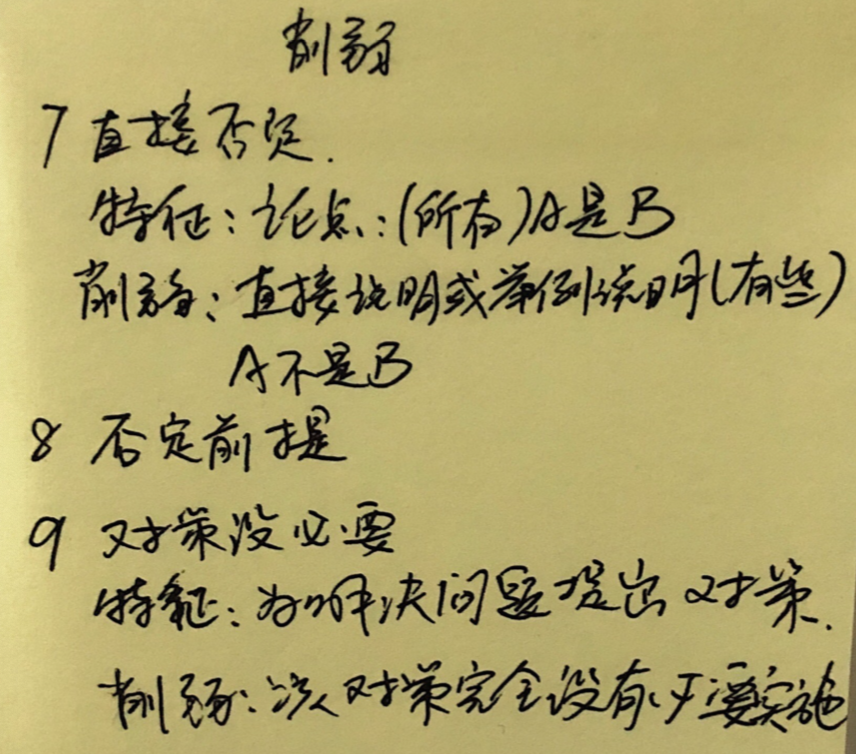 削弱
7 直接否定.
特征：论点：(所有)A是B
削弱：直接说明或举例说明(有些)
A不是B
8 否定前提
9 对策没必要
特征：为解决问题提出对策.
削弱：该对策完全没有必要实施